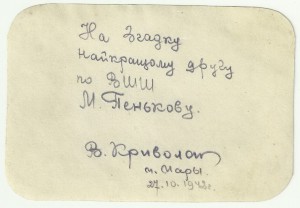 На Згадку
найкращому другу
по ВШШ
М. Пенькову.
В. Криволап
п. Мары.
27.10.1942г.